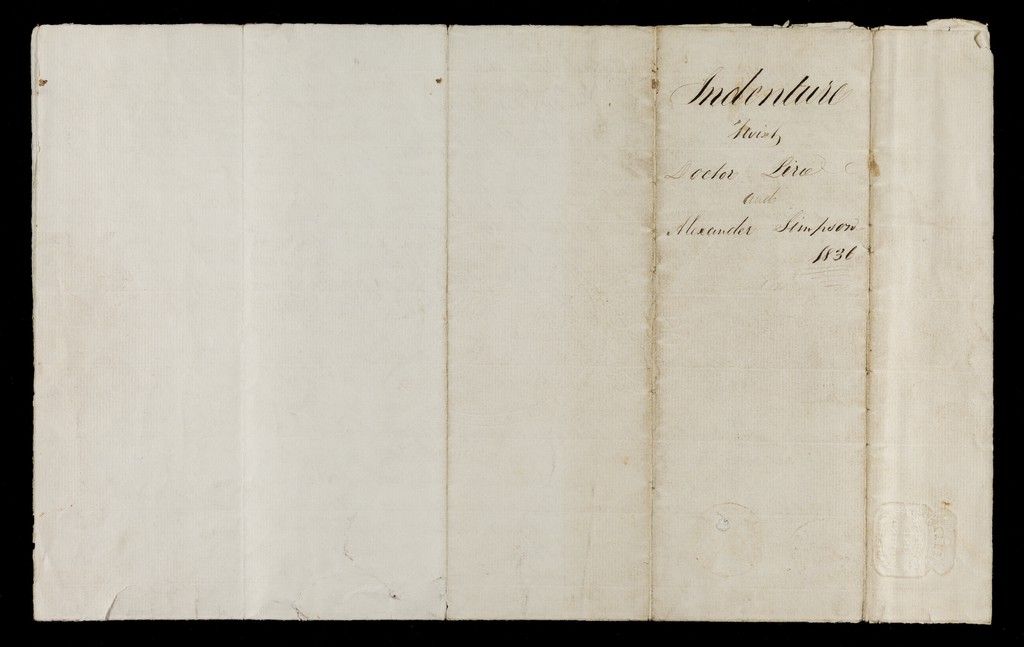 Indenture
Twixt
Doctor
and
Alexander Simpson
1836